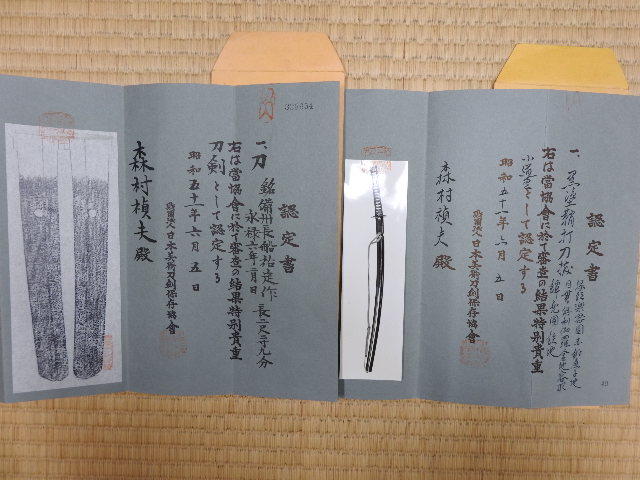 認定書
一、刀 銘備州長船祐定作
永禄六年二月日
右は當協会に於て審査の結果特別貴重
刀剣として認定する
昭和五十一年六月五日
財団法人日本美術刀剣保存協會
森村楨夫殿
認定書
一、黒塗鞘打刀拵
右は當協会に於て審査の結果特別貴重
小道具として認定する
昭和五十一年六月五日
財団法人日本美術刀剣保存協會
森村楨夫殿